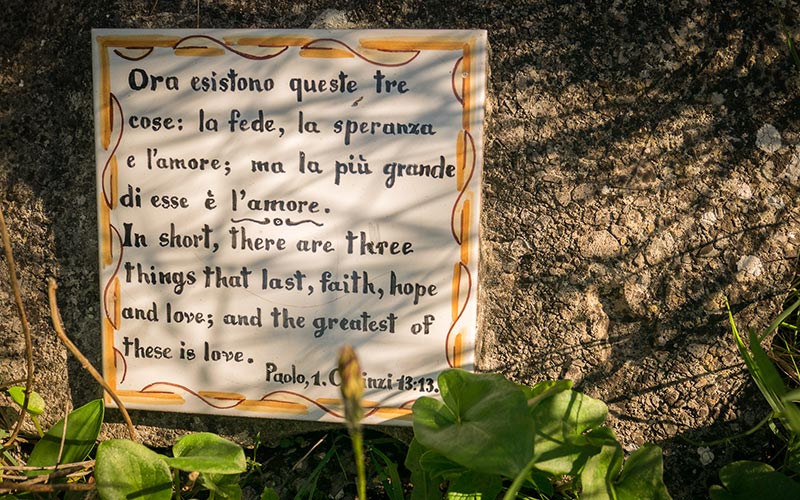 Ora esistono queste tre
cose: la fede, la speranza
e l'amore; ma la più grande
di esse è l'amore.
In short, there are three
things that last, faith, hope
and love; and the greatest of
these is love.
Paolo, 1. 13:13.